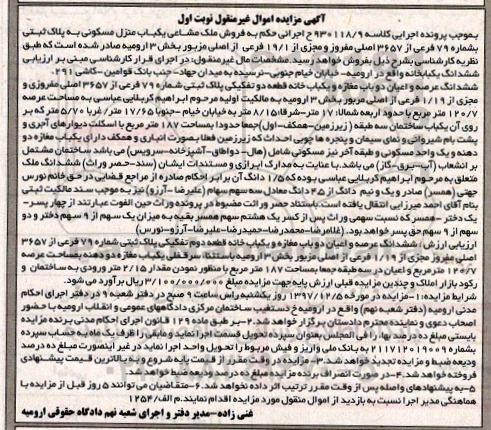 آگهی مزایده اموال غیرمنقول نوبت اول
بموجب پرونده اجرایی کلاسه ۹۳۰۱۱۸/۹ج اجرائی حکم به فروش ملک مشاعی یکباب منزل مسکونی به پلاک ثبتی
بشماره ۷۹ فرعی از ۳۶۵۷ اصلی مفروز و مجزی از ۱۹/۱ فرعی از اصلی مزبور بخش ۳ ارومیه صادر شده است که طبق
نظریه کارشناسی بشرح ذیل بفروش خواهد رسید. مشخصات مال غیرمنقول: در اجرای قرار کارشناسی مبنی بر ارزیابی
ششدانگ یکبابخانه واقع در ارومیه- خیابان خیام جنوبی-نرسیده به میدان جهاد- جنب بانک قوامین -کاشی ۲۹۱.
ششدانگ عرصه و اعیان دو باب مغازه و یکباب خانه قطعه دو تفکیکی پلاک ثبتی شماره ۷۹ فرعی از ۳۶۵۷ اصلی مفروزی و
مجزی از ۱/۱۹ فرعی از اصلی مزبور بخش ۳ ارومیه به مالکیت اولیه مرحوم ابراهیم کربلایی عباسی به مساحت عرصه
۱۲۰/۷ متر مربع با حدود اربعه شمالا: ۱۷متر- شرقا ۸/۱۵ متر به خیابان خیام -جنوبا ۱۷/۶۵ متر/ غربا ۵/۷۰ متر که بر
روی آن یکباب ساختمان سه طبقه (زیرزمین-همکف-اول) جمعا حدودا بمساحت ۱۸۷ متر مربع با اسکلت دیوارهای آجری و
پشت بام شیروانی و نمای سیمان و پنجره ها چوبی احداث که زیرزمین فعلا بصورت انباری و همکف دارای یکباب مغازه دو
دهنه و یک واحد مسکونی و طبقه آخر نیز مسکونی شامل (هال- دواطاق-آشپزخانه-سرویس) می باشد ساختمان مشتمل
بر انشعاب (آب-برق-گاز) می باشد. با عنایت به مدارک ابرازی و مستندات ایشان (سند-حصر وراث) ششدانگ ملک
متعلق به مرحوم ابراهیم کربلایی عباسی بوده که ۱/۵ دانگ آن برابر احکام صادره از مراجع قضایی در حق خانم نورس
جهتی (همسر) صادر و یک و نیم دانگ از ۴۵ دانگ معادل سه سهم سهام (علیرضا - آرزو) نیز به موجب سند مالکیت ثبتی
بنام آقای احمد میرزایی انتقال یافته است. باستناد حصر وراثت مضبوط در پرونده وراث حین الفوت عبارتند از چهار پسر-
یک دختر -همسر که نسبت سهمی وراث پس از کسر یک هشتم سهم همسر بقیه به میزان یک سهم از ۹ سهم دختر و دو
سهم از ۹ سهم حق پسر خواهد بود. (غلامرضا-محمدرضا-حمیدرضا-علیرضا-آرزو-نورس)
ارزیابی ارزش: ششدانگ عرصه و اعیان دو باب مغازه و یکباب خانه قطعه دوم تفکیکی پلاک ثبتی شماره ۷۹ فرعی از ۳۶۵۷
اصلی مفروز مجزی از ۱/۱۹ فرعی از اصلی مزبور بخش ۳ ارومیه باستثناء سرقفلی یکباب مغازه دو دهنه بمساحت عرصه
۱۲۰/۷ مترمربع و اعیان در سه طبقه جمعا بمساحت ۱۸۷ متر مربع با منظور نمودن مقدار ۲/۱۵ متر ورودی به ساختمان و
رکود بازار املاک و چندین مزایده قبلی ارزش پایه جهت مزایده مبلغ ۳/۱۰۰/۰۰۰/۰۰۰ ریال برآورد می شود.
شرایط مزایده: ۱-مزایده در مورخه ۱۳۹۷/۱۲/۵ روز یکشنبه راس ساعت ۹ صبح در دفتر شعبه ۹ در دفتر اجرای احکام
مدنی ارومیه (دفتر شعبه نهم) واقع در ارومیه خ دستغیب ساختمان مرکزی دادگاههای عمومی و انقلاب ارومیه با حضور
اصحاب دعوی و نماینده محترم دادستان برگزار خواهد شد. ۲-بر طبق ماده ۱۲۹ قانون اجرای احکام مدنی برنده مزایده
بایستی مبلغ ده درصد بها، را فی المجلس بعنوان سپرده تحویل قسمت اجرا نماید و مابقی را ظرف یک ماه به حساب سپرده
بشماره ۲۱۷۱۲۹۰۱۹۰۰۹ به بانک ملی واریز و فیش مربوط را تحویل و واحد اجرا نماید در غیر اینصورت مبلغ ده درصد
ودیعه ضبط و مزایده تجدید خواهد شد. ۳- مزایده در وقت مقرر از قیمت پایه شروع و به بالاترین قیمت پیشنهادی
فروخته خواهد شد. ۴-در صورت انصراف برنده مزایده مبلغ ده درصد ودیعه ضبط خواهد شد.
۵-به پیشنهادهای واصله پس از وقت مقرر ترتیب اثر داده نخواهد شد. ۶-متقاضیان می توانند ۵ روز قبل از مزایده با
هماهنگی مدیر اجرا نسبت به بازدید از اموال منقول مورد مزایده اقدام نمایند. م الف/۱۲۵۴
غنی زاده -مدیر دفتر و اجرای شعبه نهم دادگاه حقوقی ارومیه